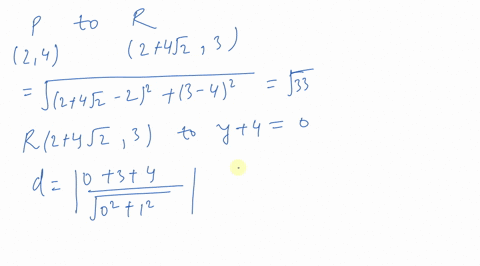 P to R
(2,4) (2+4√2 , 3)
= √((2+4√2 -2)² + (3-4)²) = √33
R(2+4√2 , 3) to y+4 = 0
d = | (0 +3+4) / √(0² + 1²) |